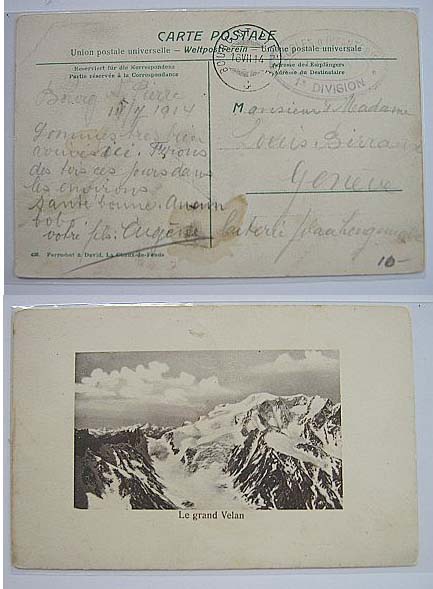 CARTE POSTALE
Union postale universelle — Weltpostverein — Unione postale universale
Reservirt für die Korrespondenz
Partie réservée à la Correspondance
Adresse des Empfängers
Adresse du Destinataire
16 VII 14
1e DIVISION
Bourg St Pierre
1914
Sommes très bien
ici. Tirons
des tirs ces jours dans
les environs
Santé bonne.
votre fils: Eugène
Monsieur & Madame
Louis
Genève
10-
438. Perrochet & David, La Chaux-de-Fonds
Le grand Velan